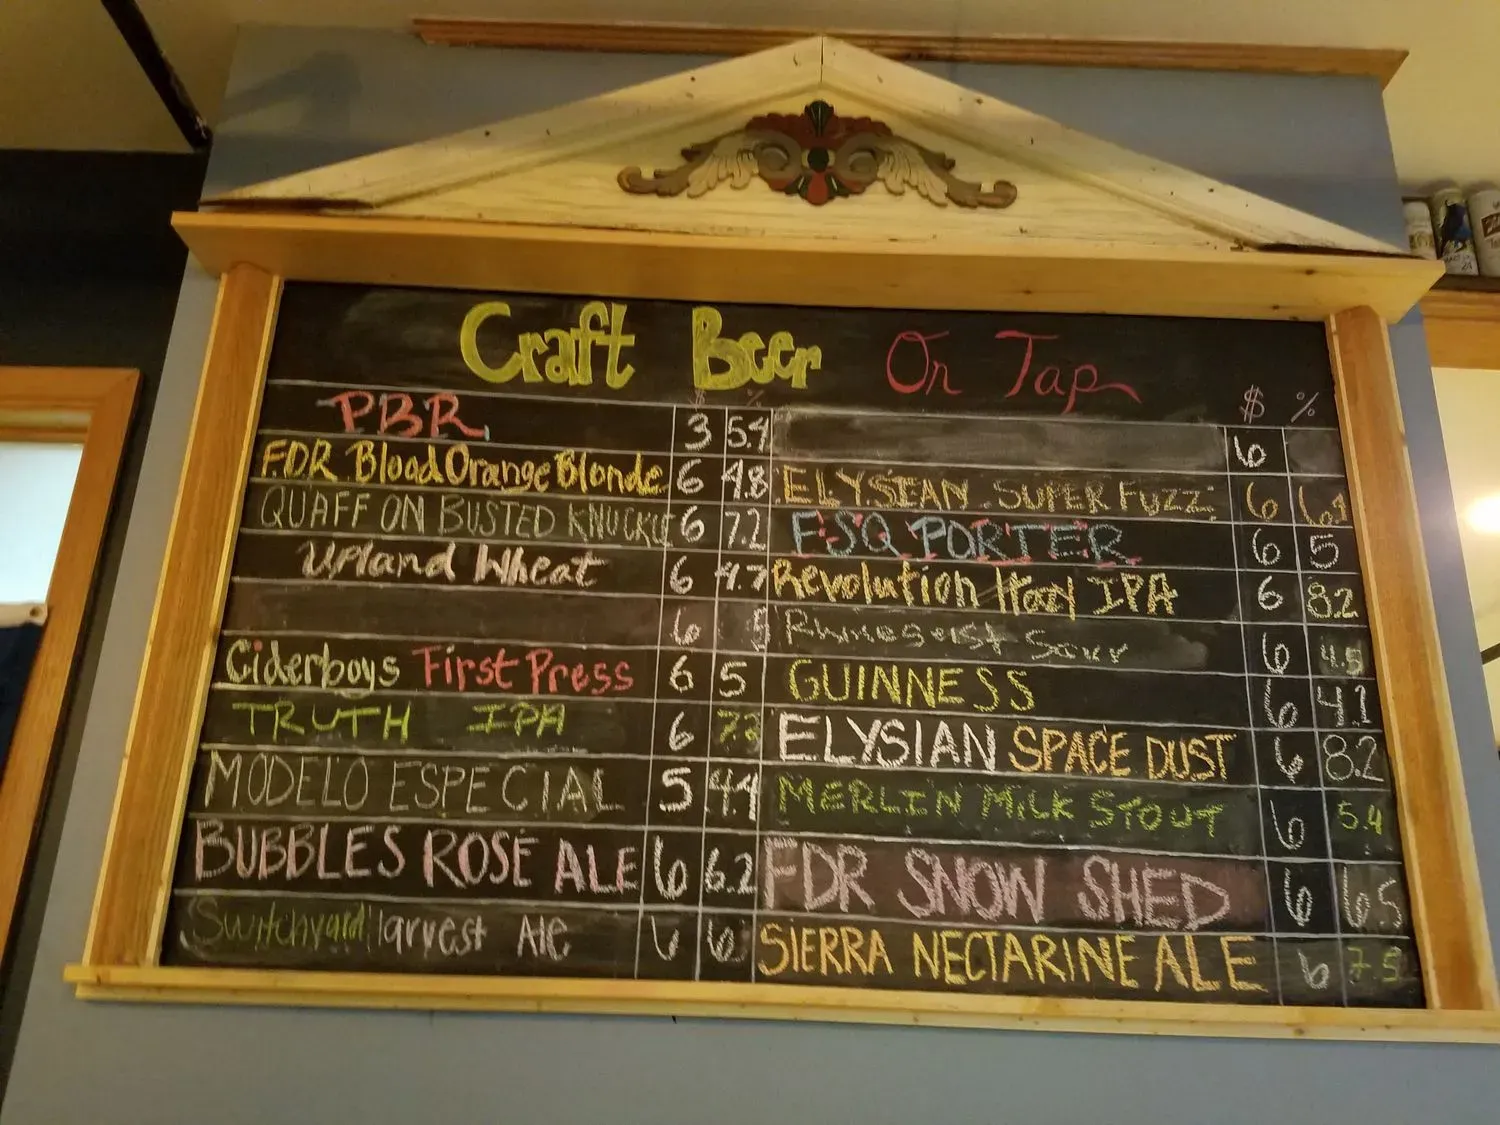 Craft Beer On Tap
$ %
PBR 3 5.4
FDR Blood Orange Blonde 6 4.8
QUAFF ON BUSTED KNUCKLE 6 7.2
Upland Wheat 6 4.7
6 5
Ciderboys First Press 6 5
TRUTH IPA 6 7.2
MODELO ESPECIAL 5 4.4
BUBBLES ROSE ALE 6 6.2
Switchyard Harvest Ale 6 6
$ %
6
ELYSIAN SUPER FUZZ 6 6.1
FSQ PORTER 6 5
Revolution Hazy IPA 6 8.2
Rhinegeist Sour 6 4.5
GUINNESS 6 4.1
ELYSIAN SPACE DUST 6 8.2
MERLIN MILK STOUT 6 5.4
FDR SNOW SHED 6 6.5
SIERRA NECTARINE ALE 6 7.5